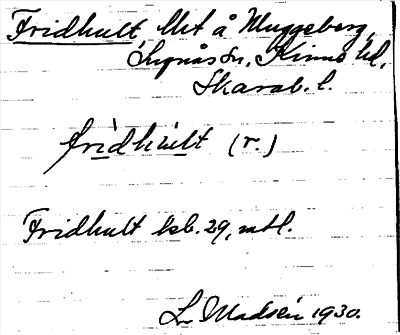 Fridhult lht å Muggeberg,
Lugnås sn, Kinne hd,
Skarab. l.
fri̲dhu̲lt (r.)
Fridhult hsb. 29, mtl.
L. Madsén 1930.